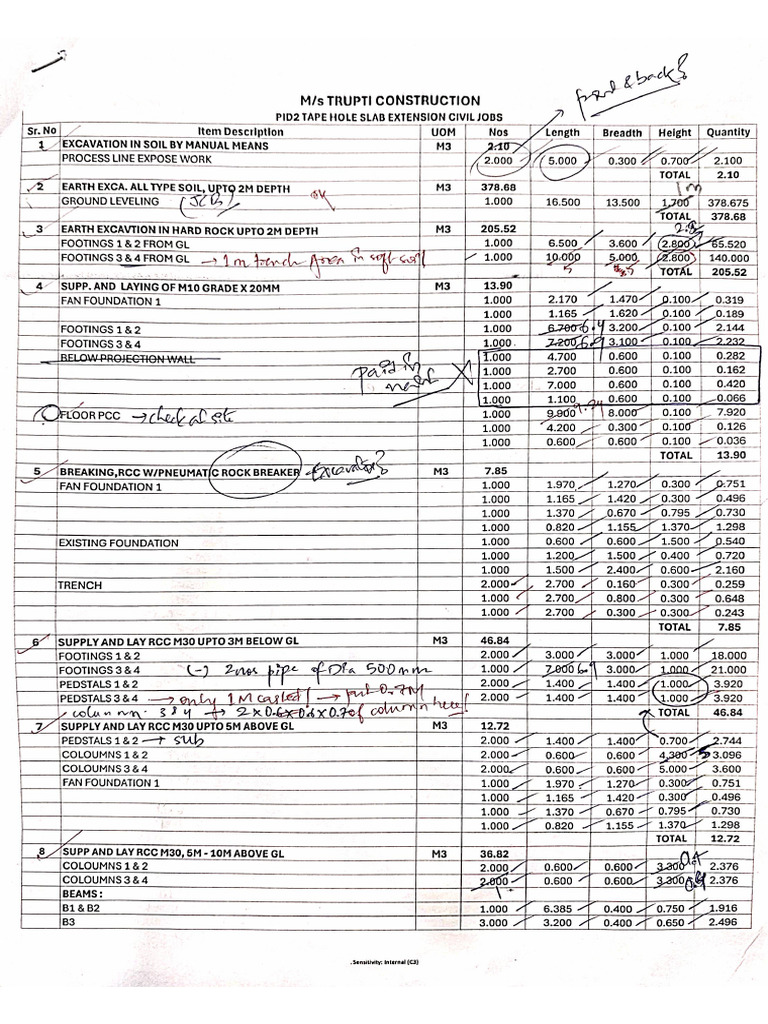 front & back?
M/s TRUPTI CONSTRUCTION
PID2 TAPE HOLE SLAB EXTENSION CIVIL JOBS
Sr. No Item Description UOM Nos Length Breadth Height Quantity
1 EXCAVATION IN SOIL BY MANUAL MEANS M3 2.10
PROCESS LINE EXPOSE WORK 2.000 5.000 0.300 0.700 2.100
TOTAL 2.10
2 EARTH EXCA. ALL TYPE SOIL, UPTO 2M DEPTH M3 378.68 1m
GROUND LEVELING (JCB) ok 1.000 16.500 13.500 1.700 378.675
TOTAL 378.68
3 EARTH EXCAVTION IN HARD ROCK UPTO 2M DEPTH M3 205.52
FOOTINGS 1 & 2 FROM GL 1.000 6.500 3.600 2.800 65.520
FOOTINGS 3 & 4 FROM GL → 1m trench Area in soft soil 1.000 10.000 5.000 2.800 140.000
TOTAL 205.52
4 SUPP. AND LAYING OF M10 GRADE X 20MM M3 13.90
FAN FOUNDATION 1 1.000 2.170 1.470 0.100 0.319
1.000 1.165 1.620 0.100 0.189
FOOTINGS 1 & 2 1.000 6.700 6.4 3.200 0.100 2.144
FOOTINGS 3 & 4 1.000 7.200 6.9 3.100 0.100 2.232
BELOW PROJECTION WALL 1.000 4.700 0.600 0.100 0.282
Paid in 1.000 2.700 0.600 0.100 0.162
1.000 7.000 0.600 0.100 0.420
1.000 1.100 0.600 0.100 0.066
FLOOR PCC → check at site 1.000 9.900 8.000 0.100 7.920
1.000 4.200 0.300 0.100 0.126
1.000 0.600 0.600 0.100 0.036
TOTAL 13.90
5 BREAKING,RCC W/PNEUMATIC ROCK BREAKER - Excavator? M3 7.85
FAN FOUNDATION 1 1.000 1.970 1.270 0.300 0.751
1.000 1.165 1.420 0.300 0.496
1.000 1.370 0.670 0.795 0.730
1.000 0.820 1.155 1.370 1.298
EXISTING FOUNDATION 1.000 0.600 0.600 1.500 0.540
1.000 1.200 1.500 0.400 0.720
1.000 1.500 2.400 0.600 2.160
TRENCH 2.000 2.700 0.160 0.300 0.259
1.000 2.700 0.800 0.300 0.648
1.000 2.700 0.300 0.300 0.243
TOTAL 7.85
6 SUPPLY AND LAY RCC M30 UPTO 3M BELOW GL M3 46.84
FOOTINGS 1 & 2 2.000 3.000 3.000 1.000 18.000
FOOTINGS 3 & 4 (-) 2nos pipe of Dia 500mm 1.000 7.000 6.9 3.000 1.000 21.000
PEDSTALS 1 & 2 2.000 1.400 1.400 1.000 3.920
PEDSTALS 3 & 4 → only 1M casted → put 0.7M 2.000 1.400 1.400 1.000 3.920
column 3 & 4 → 2 x 0.6 x 0.6 x 0.7 of column here! TOTAL 46.84
7 SUPPLY AND LAY RCC M30 UPTO 5M ABOVE GL M3 12.72
PEDSTALS 1 & 2 → sub 2.000 1.400 1.400 0.700 2.744
COLOUMNS 1 & 2 2.000 0.600 0.600 4.300 3.096
COLOUMNS 3 & 4 2.000 0.600 0.600 5.000 3.600
FAN FOUNDATION 1 1.000 1.970 1.270 0.300 0.751
1.000 1.165 1.420 0.300 0.496
1.000 1.370 0.670 0.795 0.730
1.000 0.820 1.155 1.370 1.298
TOTAL 12.72
8 SUPP AND LAY RCC M30, 5M - 10M ABOVE GL M3 36.82
COLOUMNS 1 & 2 2.000 0.600 0.600 3.300 2.376
COLOUMNS 3 & 4 2.000 0.600 0.600 3.300 2.376
BEAMS :
B1 & B2 1.000 6.385 0.400 0.750 1.916
B3 3.000 3.200 0.400 0.650 2.496
.Sensitivity: Internal (C3)